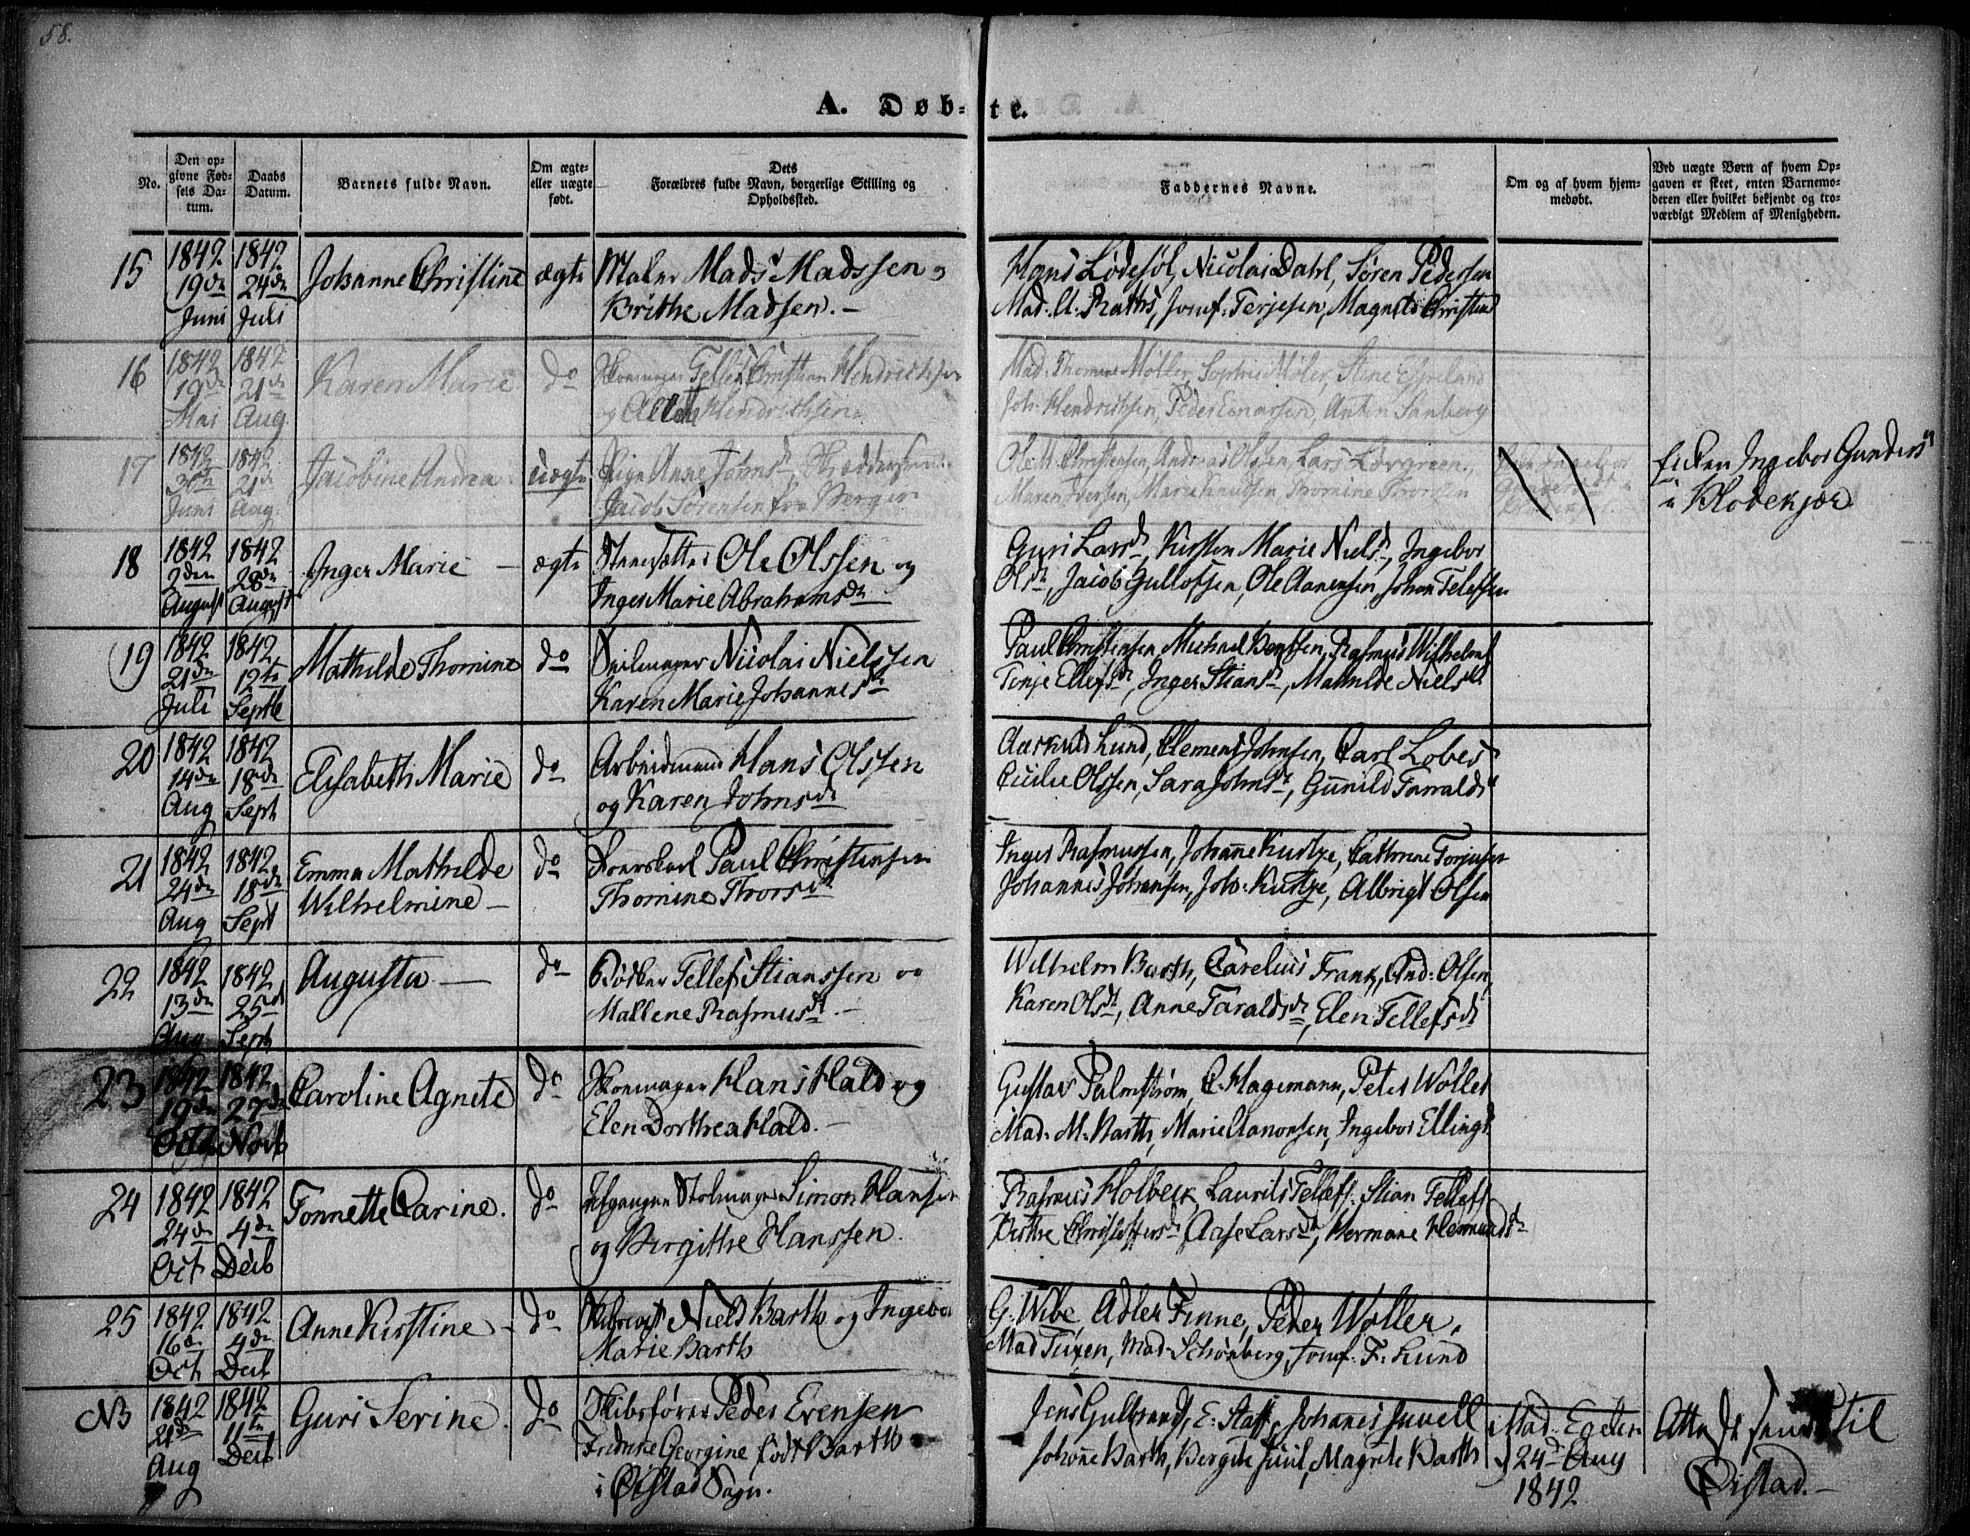 58.
A. Døb-te.
No.
Den op-
givne Fød-
sels Da-
tum.
Daabs
Datum.
Barnets fulde Navn.
Om ægte-
eller uægte
født.
Dets
Forældres fulde Navn, borgerlige Stilling og
Opholdssted.
Faddernes Navne.
Om og af hvem hjem-
medøbt.
Ved uægte Børn af hvem Op-
gaven er skeet, enten Barnemo-
deren eller hvilket bekjendt og tro-
værdigt Medlem af Menigheden.
15
1842
19de
Juni
1842
24de
Juli
Johanne Christine
ægte
Maler Mads Madssen
Brithe Madsen. -
Hans Lødesøl, Nicolai Dahl, Søren Pedersen
Mad. A. Raths, Jomf. Terjesen,
16
1842
19de
Mai
1842
21de
Aug.
Karen Marie
do
Skomager Tellef Christian Hendrichsen
og Hendrichsen
Mad. Thomine Møller, Sophie Møler, Stine
Joh. Hendrichsen, Peder Anton Sanberg
17
1842
Juni
1842
21de
Aug.
Jacobine Andrea
uægte
Pige Anne Johnsd.
Jacob Sørensen fra
Ole Christensen, Andreas Olsen, Lars Løvgreen,
Maren Iversen, Marie Knudsen, Thomine Thorsen
Enken Ingebor Gunders
i Klodekjær
18
1842
2den
August
1842
28de
August
Inger Marie -
ægte
Ole Olssen og
Inger Marie Abrahamsdr
Guri Larsd, Kirsten Marie Nielsd, Ingebor
Olsd, Jacob Gullofsen, Ole Aanensen, Johan Telefsen
19
1842
21de
Juli
1842
12te
Septb
Mathilde Thomine
do
Seilmager Nicolai Nielssen
Karen Marie Johannesd
Paul Christensen, Michael Bentsen, Rasmus Wilhelms
Tonje Ellefsd, Inger Stiansd, Mathilde Nielsd
20
1842
14de
Aug
1842
18de
Sept
Elisabeth Marie
do
Arbeidmand Hans Olssen
og Karen Johnsd
Lund, Clemens Johnsen, Carl Lobes
Cicilie Olssen, Sara Johnsd, Gunild Tarralds
21
1842
24de
Aug
1842
18de
Sept
Emma Mathilde
Wilhelmine -
do
Paul Christensen
Thomine Thorsd
Inger Rasmussen, Johanne Kuttze, Cathrine Torjusen
Johannes Johansen, Joh. Kuttze, Albrigt Olsen
22
1842
13de
Aug
1842
25de
Sept
Augusta. -
do
Bødker Tellef Stianssen og
Mallene Rasmusd. -
Wilhelm Barth, Carelius Frank, And. Olsen,
Karen Olsd, Anne Taraldsd, Elen Tellefsd
23
1842
19de
Octb
1842
27de
Novb
Caroline Agnete
do
Skomager Hans Hald og
Elen Dorthea Hald. -
Gustav Palmstrøm, C. Hagemann, Peter Woller
Mad. M. Barth, Marie Aanonsen, Ingebor Ellingd
24
1842
24de
Oct
1842
4de
Decb
Tonnette Carine.
do
Afgangen Stolmager Simon Hansen
og Bergitthe Hanssen.
Rasmus Holbeck, Laurits Tellefs. Stian Tellefs
Birthe Christoffersd Aase Larsd, Hermane Hermundsd
25
1842
16de
Oct
1842
4de
Decb
Anne Kirstine -
do
Niels Barth og Ingebor
Marie Barth
G. Wibe, Adler Finne, Peder Woller,
Mad Tuxen, Mad. Schønberg, Jomf. F. Lund
NB
1842
21de
Aug
1842
11te
Decb
Guri Serine.
do
Skibsfører Peder Evensen
Fredrike Georgine født Barth
i Øistad Sogn.
Jens Gulbrands, E. Staff, Johanes Juvell
Johanne Barth, Bergete Juul, Magrete Barth
24de Aug
1842
Att. sendt til
Øistad. -